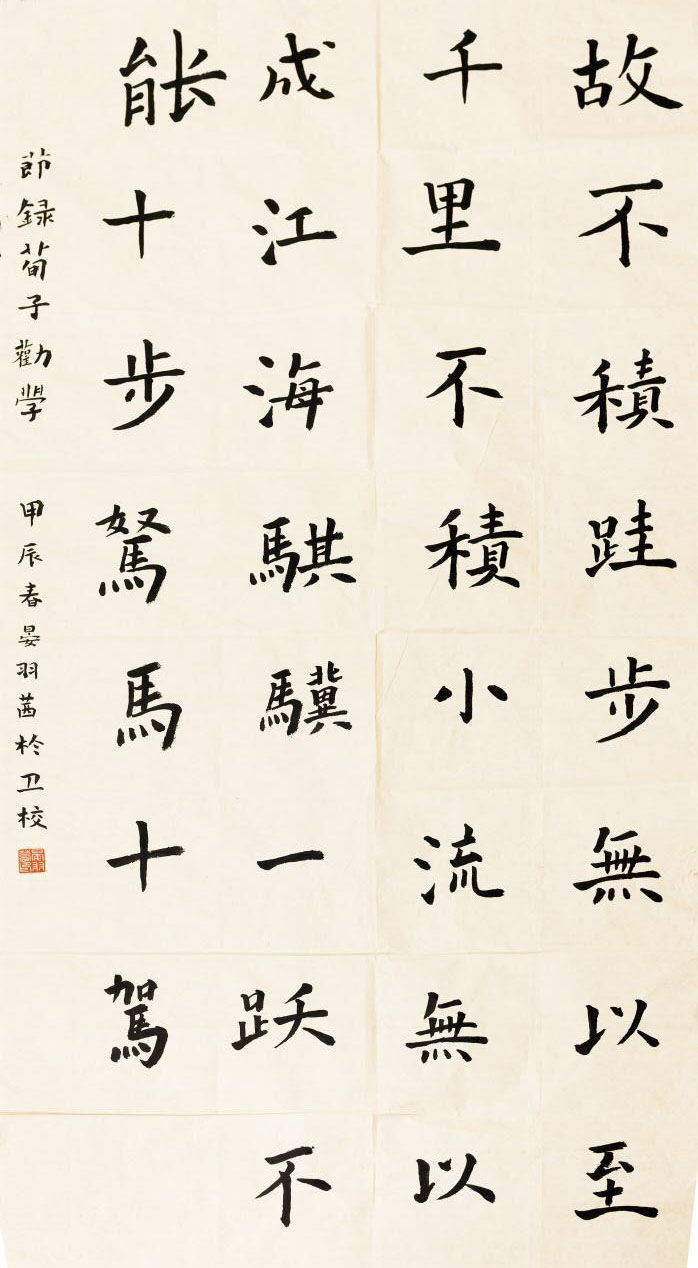 故不積跬步無以至
千里不積小流無以
成江海騏驥一跃不
能十步駑馬十駕
節録荀子勸學 甲辰春晏羽茜於卫校